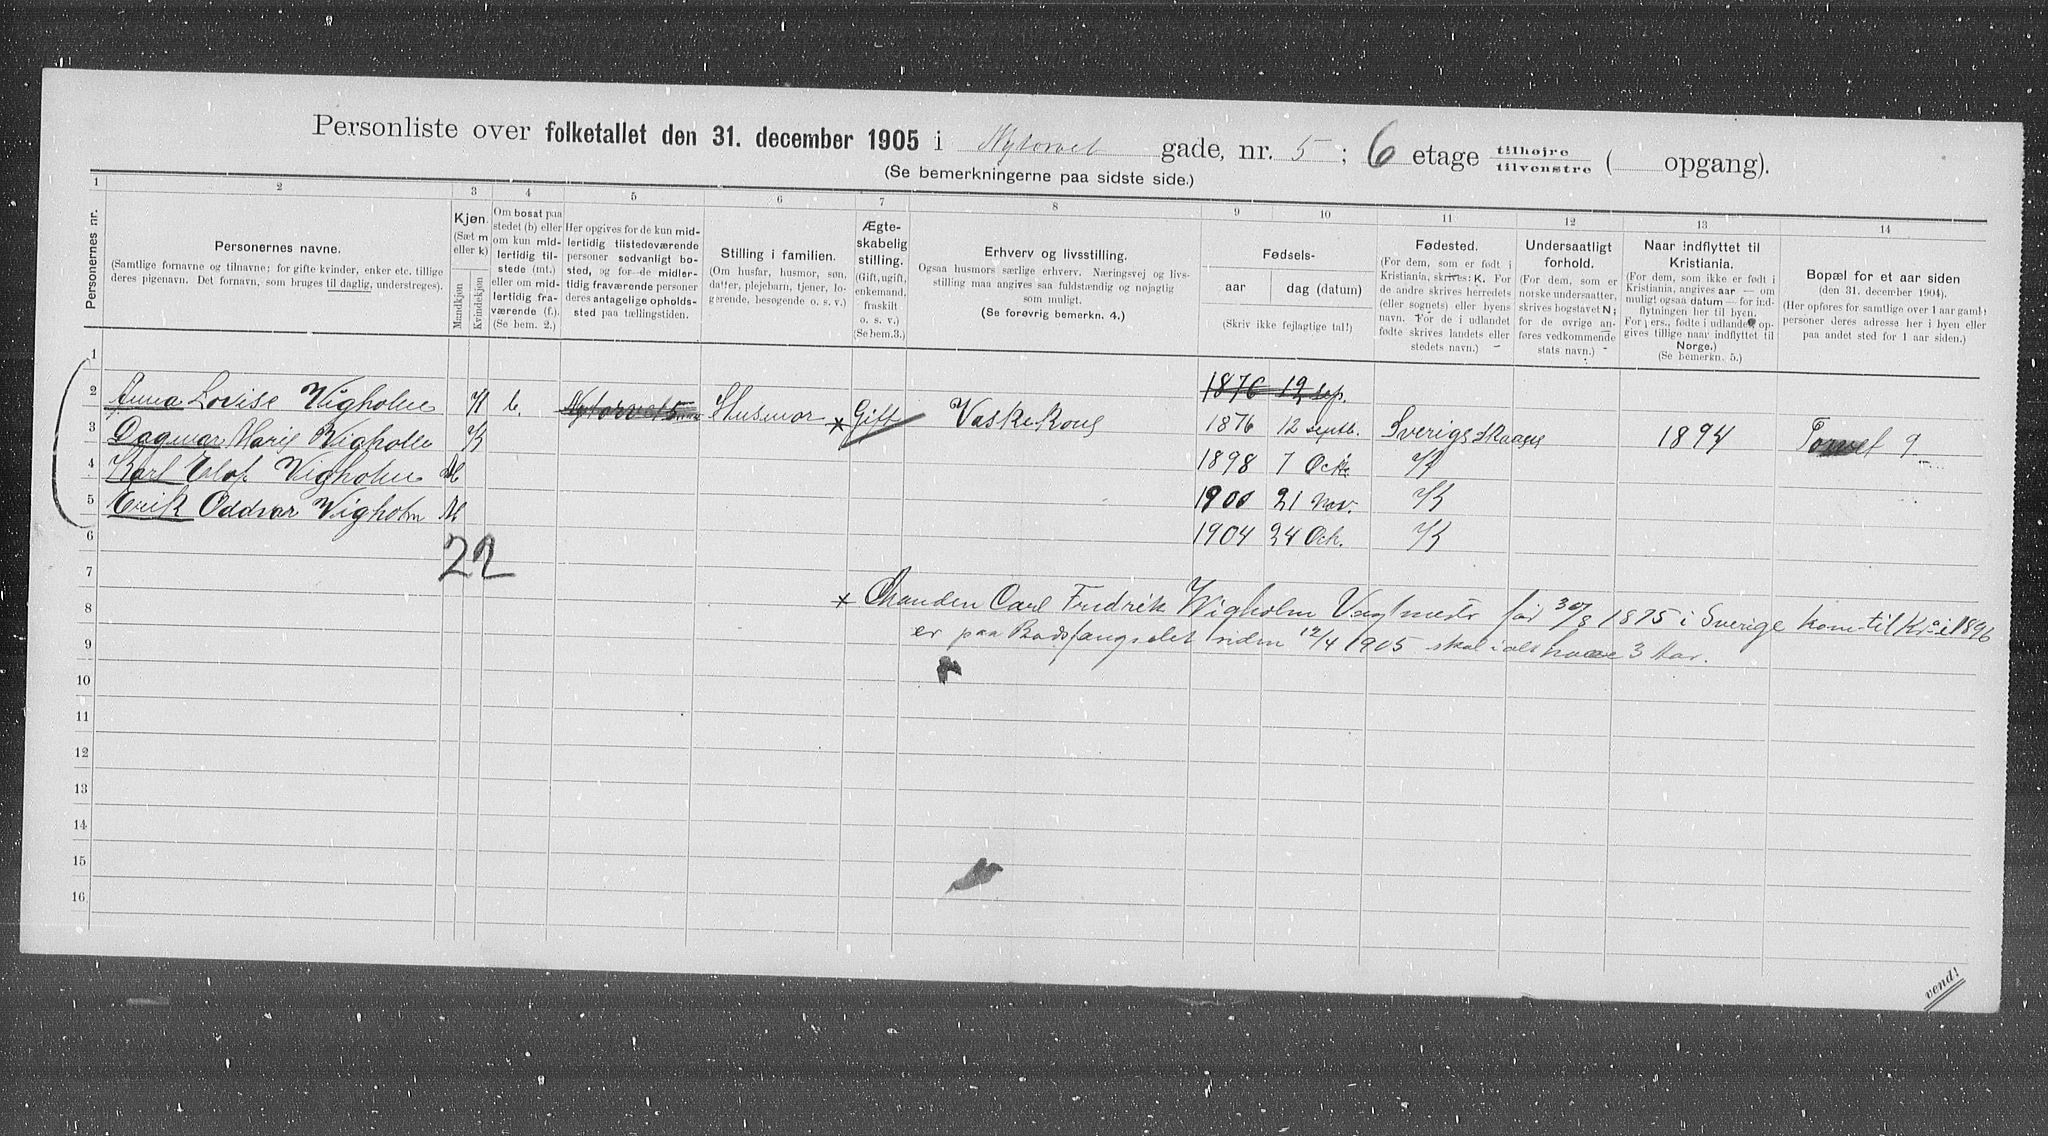 Personliste over folketallet den 31. december 1905 i Nytorvet gade, nr. 5; 6 etage tilhøjre tilvenstre ( opgang).
(Se bemerkningerne paa sidste side.)
1 2 3 4 5 6 7 8 9 10 11 12 13 14
Personernes nr.
Personernes navne.
(Samtlige fornavne og tilnavne; for gifte kvinder, enker etc. tillige
deres pigenavn. Det fornavn, som bruges til daglig, understreges).
Kjøn.
(Sæt m
eller k)
Mandkjøn
Kvindekjøn
Om bosat paa
stedet (b) eller
om kun mid-
lertidig til-
stede (mt.)
eller om mid-
lertidig fra-
værende (f.).
(Se bem. 2.)
Her opgives for de kun mid-
lertidig tilstedeværende
personer sedvanlig bo-
sted, og for de midler-
tidig fraværende personer
deres antagelige opholds-
sted paa tællingstiden.
Stilling i familien.
(Om husfar, husmor, søn,
datter, plejebarn, tjener, lo-
gerende, besøgende o. s. v.)
Ægte-
skabelig
stilling.
(Gift, ugift,
enkemand,
fraskilt
o. s. v.)
(Se bem. 3.)
Erhverv og livsstilling.
Ogsaa husmors særlige erhverv. Næringsvej og livs-
stilling maa angives saa fuldstændig og nøjagtig
som muligt.
(Se forøvrig bemerkn. 4.)
Fødsels-
aar dag (datum)
(Skriv ikke fejlagtige tal!)
Fødested.
(For dem, som er født i
Kristiania, skrives: K. For
de andre skrives herredets
(eller sognets) eller byens
navn. For de i udlandet
fødte skrives landets eller
stedets navn.)
Undersaatligt
forhold.
(For dem, som er
norske undersaatter,
skrives bogstavet N;
for de øvrige an-
føres vedkommende
stats navn.)
Naar indflyttet til
Kristiania.
(For dem, som ikke er født i
Kristiania, angives aar — om
muligt ogsaa datum — for ind-
flytningen her til byen.
For pers., fødte i udlandet, op-
gives tillige naar indflyttet til
Norge.)
(Se bemerkn. 5.)
Bopæl for et aar siden
(den 31. december 1904).
(Her opføres for samtlige over 1 aar gaml.
personer deres adresse her i byen eller
paa andet sted for 1 aar siden.)
1 1876 12 sep.
2 Anna Lovise Wigholm K b. Nytorvet 5 Husmor × Gift Vaskekone 1876 12 Septb. Sverige 1894 Torvet 9
3 Dagmar Marie Wigholm K 1898 7 Octb. K
4 Karl Olof Wigholm M 1900 21 Nov. K
5 Erik Oddvar Wigholm M 1904 24 Oct. K
6
22
7
× Manden Carl Fredrik Wigholm Vagtmestr fød 30/8 1875 i Sverige kom til Kra i 1896
8
er paa Bodsfængslet siden 12/4 1905 skal ialt have 3 Aar.
9
10
11
12
13
14
15
16
vend!